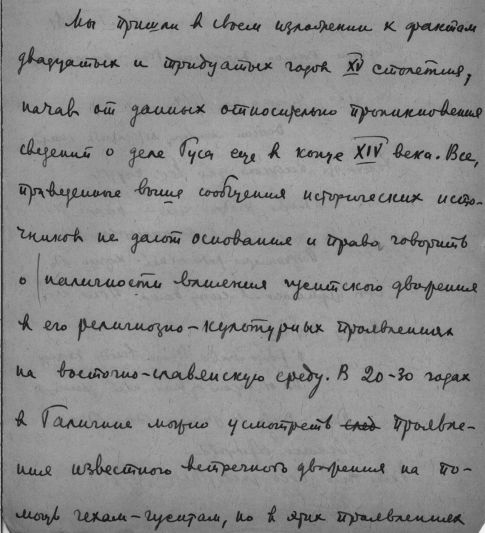 Мы пришли в своем изложении к фактам
двадцатых и тридцатых годов XV столетия,
начав от данных относительно проникновения
сведений о деле Гуса еще в конце XIV века. Все,
приведенные выше сообщения исторических исто-
чников не дают основания и права говорить
о наличности влияния гуситского движения
в его религиозно-культурных проявлениях
на восточно-славянскую среду. В 20-30 годах
в Галичине можно усмотреть след проявле-
ния известного встречного движения на по-
мощь чехам-гуситам, но в этих проявлениях